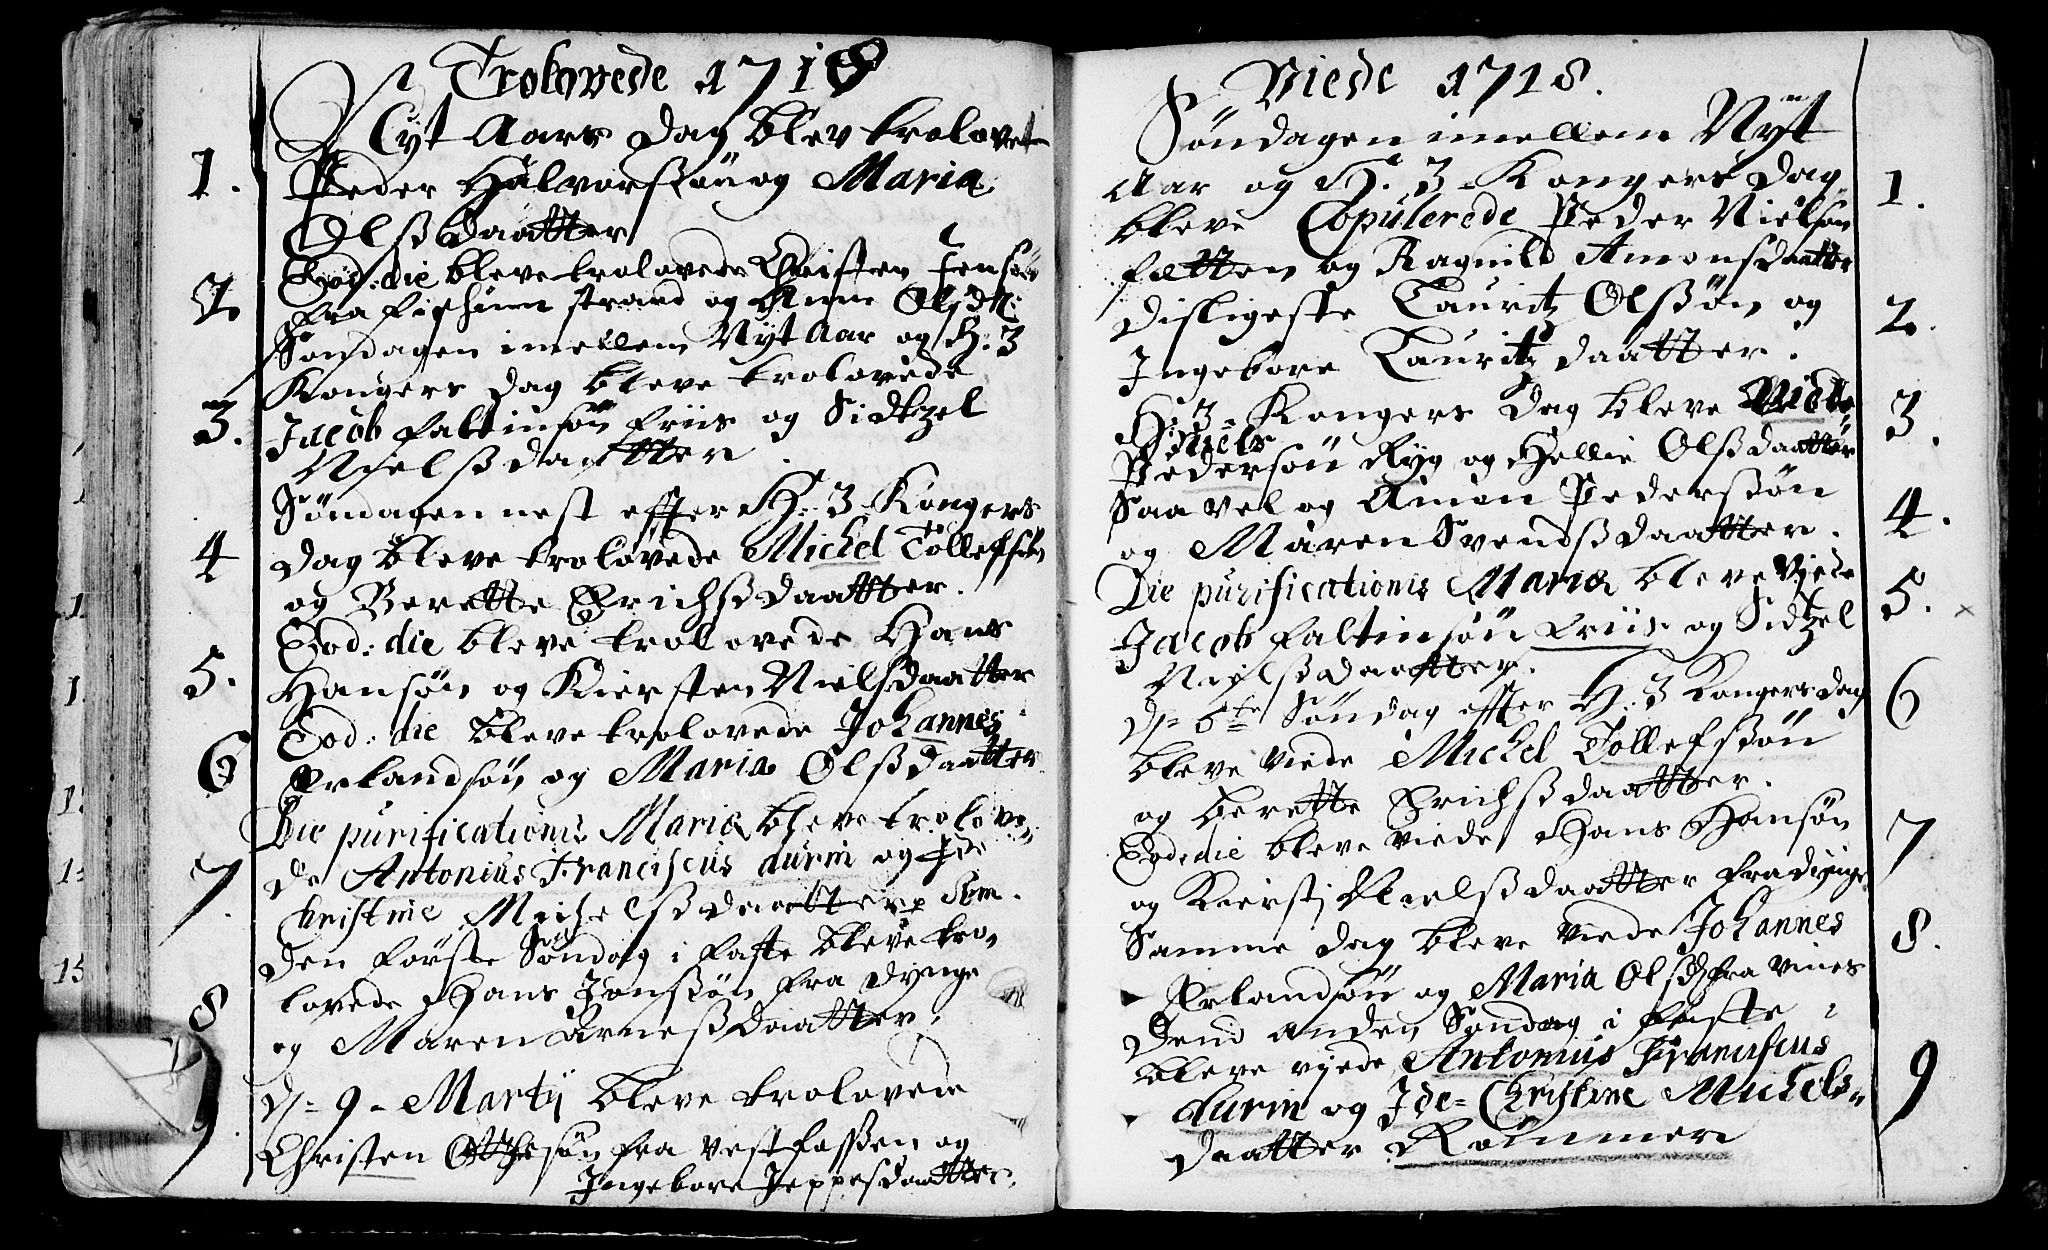 Trolovede 1718
Nyt Aars dag blev trolovet
1. Peder Halvorssøn og Maria
Olsdaatter
Eod: die bleve trolovede Christen Jensøn
2. fra strand og Anne Olsdt:
Søndagen imellem Nyt Aar og H. 3
Kongers dag bleve trolovede
3. Jacob Faltinsøn Friis og Sidtzel
Nielsdaatter
Søndagen nest effter H. 3 Kongers
4 dag bleve trolovede Michel Tollefsøn
og Berette Erichsdaatter.
Eod: die bleve trolovede Hans
5. Hansøn og Kiersten Nielsdaatter
Eod: die bleve trolovede Johannes
6 Erlandsøn og Maria Olsdaatter
Die purificationis Mariæ bleve trolove-
7. de Antonius Franciscus durin og Ide
Christine Michelsdaatter
Den første Søndag i Faste bleve tro-
lovede Hans Jonssøn fra dynge
8 og Maren Arnesdaatter.
d. 9 Martij bleve trolovede
9 Christen Otthesøn fra Vestfossen og
Ingebore Jeppesdaatter.
Viede 1718.
Søndagen imellem Nyt
Aar og H. 3 Kongers dag 1.
bleve Copulerede Peder Nielsøn
fætten og Ragnild Amonsdaatter
Disligeste Lauritz Olssøn og 2.
Ingebore Lauritzdaatter.
H. 3 Kongers dag bleve Viede 3.
Niels
Pedersøn Ryg og Hellie Olsdaatter
Saa vel og Amon Pederssøn 4.
og Maren Svendsdaatter.
Die purificationis Mariæ bleve Vjede 5.
Jacob Faltinsøn Friis og Sidtzel
Nielsdaatter.
d. 6te Søndag effter H. 3 Kongers dag 6
bleve viede Michel Tollefssøn
og Berette Erichsdaatter.
Eod: die bleve viede Hans Hansøn 7
og Kiersti Nielsdaatter fra dynge
Samme dag bleve viede Johannes 8.
Erlandsøn og Maria Olsd. fra vines
Dend anden Søndag i Faste
bleve vjede Antonius Franciscus
durin og Ide Christine Michels- 9
daatter Rommen